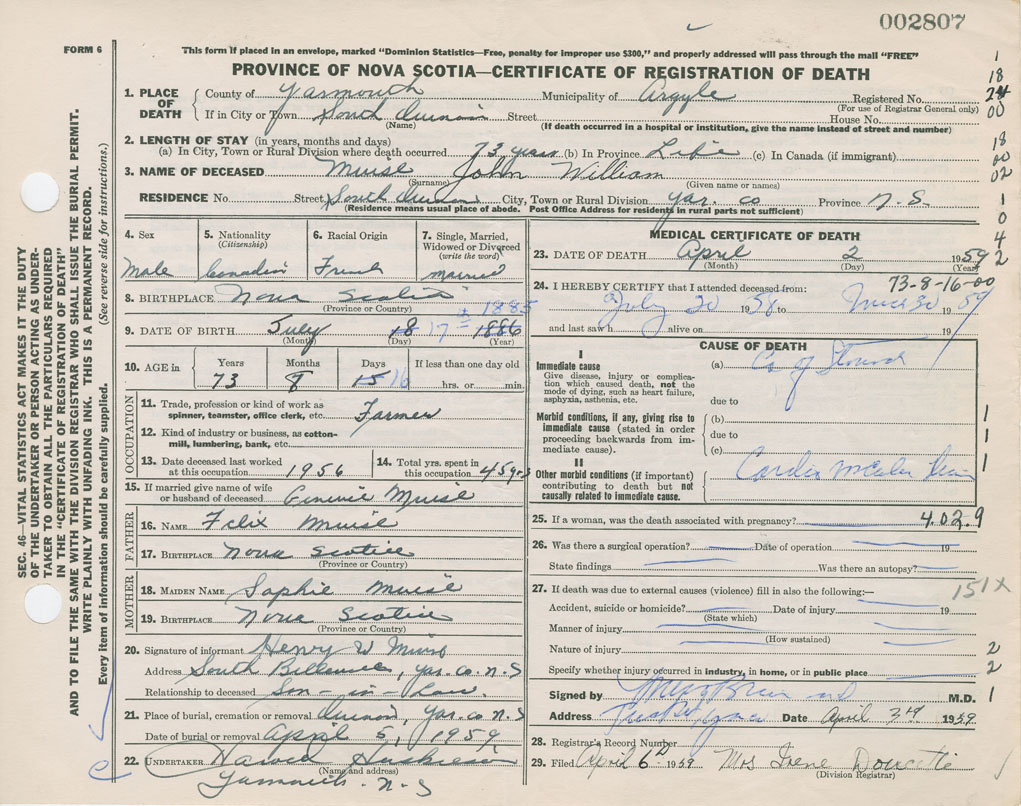 002807
FORM 6
This form if placed in an envelope, marked "Dominion Statistics—Free, penalty for improper use $300," and properly addressed will pass through the mail "FREE"
PROVINCE OF NOVA SCOTIA—CERTIFICATE OF REGISTRATION OF DEATH
1. PLACE OF DEATH
County of Yarmouth Municipality of Argyle Registered No.
(For use of Registrar General only)
If in City or Town South Quinan Street House No.
(Name) (If death occurred in a hospital or institution, give the name instead of street and number)
2. LENGTH OF STAY (in years, months and days)
(a) In City, Town or Rural Division where death occurred 73 years (b) In Province Life (c) In Canada (if immigrant)
3. NAME OF DECEASED Muise John William
(Surname) (Given name or names)
RESIDENCE No. Street South Quinan City, Town or Rural Division Yar. Co Province N.S.
(Residence means usual place of abode. Post Office Address for residents in rural parts not sufficient)
1
18
24
00
18
00
02
1
0
4
2
4. Sex 5. Nationality 6. Racial Origin 7. Single, Married,
(Citizenship) Widowed or Divorced
(write the word)
Male Canadian French married
8. BIRTHPLACE Nova Scotia
(Province or Country)
9. DATE OF BIRTH July 18 17 1885 1886
(Month) (Day) (Year)
10. AGE in Years Months Days If less than one day old
73 8 15 16 hrs. or min.
OCCUPATION
11. Trade, profession or kind of work as
spinner, teamster, office clerk, etc. Farmer
12. Kind of industry or business, as cotton-
mill, lumbering, bank, etc.
13. Date deceased last worked
at this occupation 1956
14. Total yrs. spent in
this occupation 45 yrs
15. If married give name of wife
or husband of deceased Muise
FATHER
16. NAME Felix Muise
17. BIRTHPLACE Nova Scotia
(Province or Country)
MOTHER
18. MAIDEN NAME Sophie Muise
19. BIRTHPLACE Nova Scotia
(Province or Country)
20. Signature of informant Henry W Muise
Address South Belleville, Yar. Co. N.S
Relationship to deceased Son-in-Law.
21. Place of burial, cremation or removal Quinan, Yar. Co N.S
Date of burial or removal April 5, 1959
22. UNDERTAKER
(Name and address)
Yarmouth. N.S
MEDICAL CERTIFICATE OF DEATH
23. DATE OF DEATH April 2 1959
(Month) (Day) (Year)
73-8-16-00
24. I HEREBY CERTIFY that I attended deceased from:
July 20 1958 to 30 1959
and last saw h alive on 19
CAUSE OF DEATH
I
Immediate cause
Give disease, injury or complica-
tion which caused death, not the
mode of dying, such as heart failure,
asphyxia, asthenia, etc.
(a) Ca of Stomach
due to
Morbid conditions, if any, giving rise to
immediate cause (stated in order
proceeding backwards from im-
mediate cause).
(b)
due to
(c)
1
1
1
II
Other morbid conditions (if important)
contributing to death but not
causally related to immediate cause.
25. If a woman, was the death associated with pregnancy? 4.02.9
26. Was there a surgical operation? Date of operation 19
State findings Was there an autopsy?
27. If death was due to external causes (violence) fill in also the following:—
151X
Accident, suicide or homicide? Date of injury 19
(State which)
Manner of injury
(How sustained)
Nature of injury 2
Specify whether injury occurred in industry, in home, or in public place 2
Signed by M.D. 1
Address Date April 3rd 1959
28. Registrar's Record Number
29. Filed April 6th 1959 Mrs Irene Doucette
(Division Registrar)
SEC. 46—VITAL STATISTICS ACT MAKES IT THE DUTY
OF THE UNDERTAKER OR PERSON ACTING AS UNDER-
TAKER TO OBTAIN ALL THE PARTICULARS REQUIRED
IN THE "CERTIFICATE OF REGISTRATION OF DEATH"
AND TO FILE THE SAME WITH THE DIVISION REGISTRAR WHO SHALL ISSUE THE BURIAL PERMIT.
WRITE PLAINLY WITH UNFADING INK. THIS IS A PERMANENT RECORD.
Every item of information should be carefully supplied. (See reverse side for instructions.)